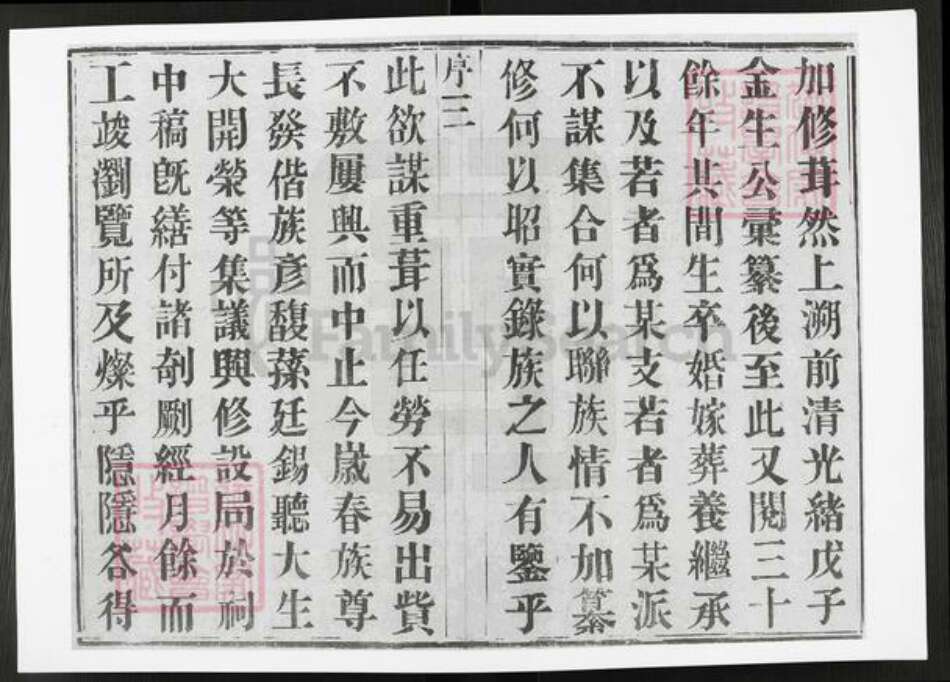 加修葺然上溯前清光緒戊子
金生公彙纂後至此又閱三十
餘年共間生卒婚嫁葬養繼承
以及若者爲某支若者爲某派
不謀集合何以聯族情不加纂
修何以昭實錄族之人有鑒乎
序三
此欲謀重葺以任勞不易出貲
不敷屢興而中止今歲春族尊
長發偕族彥馥蓀廷錫聽大生
大開榮等集議興修設局於祠
中稿旣繕付諸剞劂經月餘而
工竣瀏覽所及燦乎隱隱各得
FamilySearch